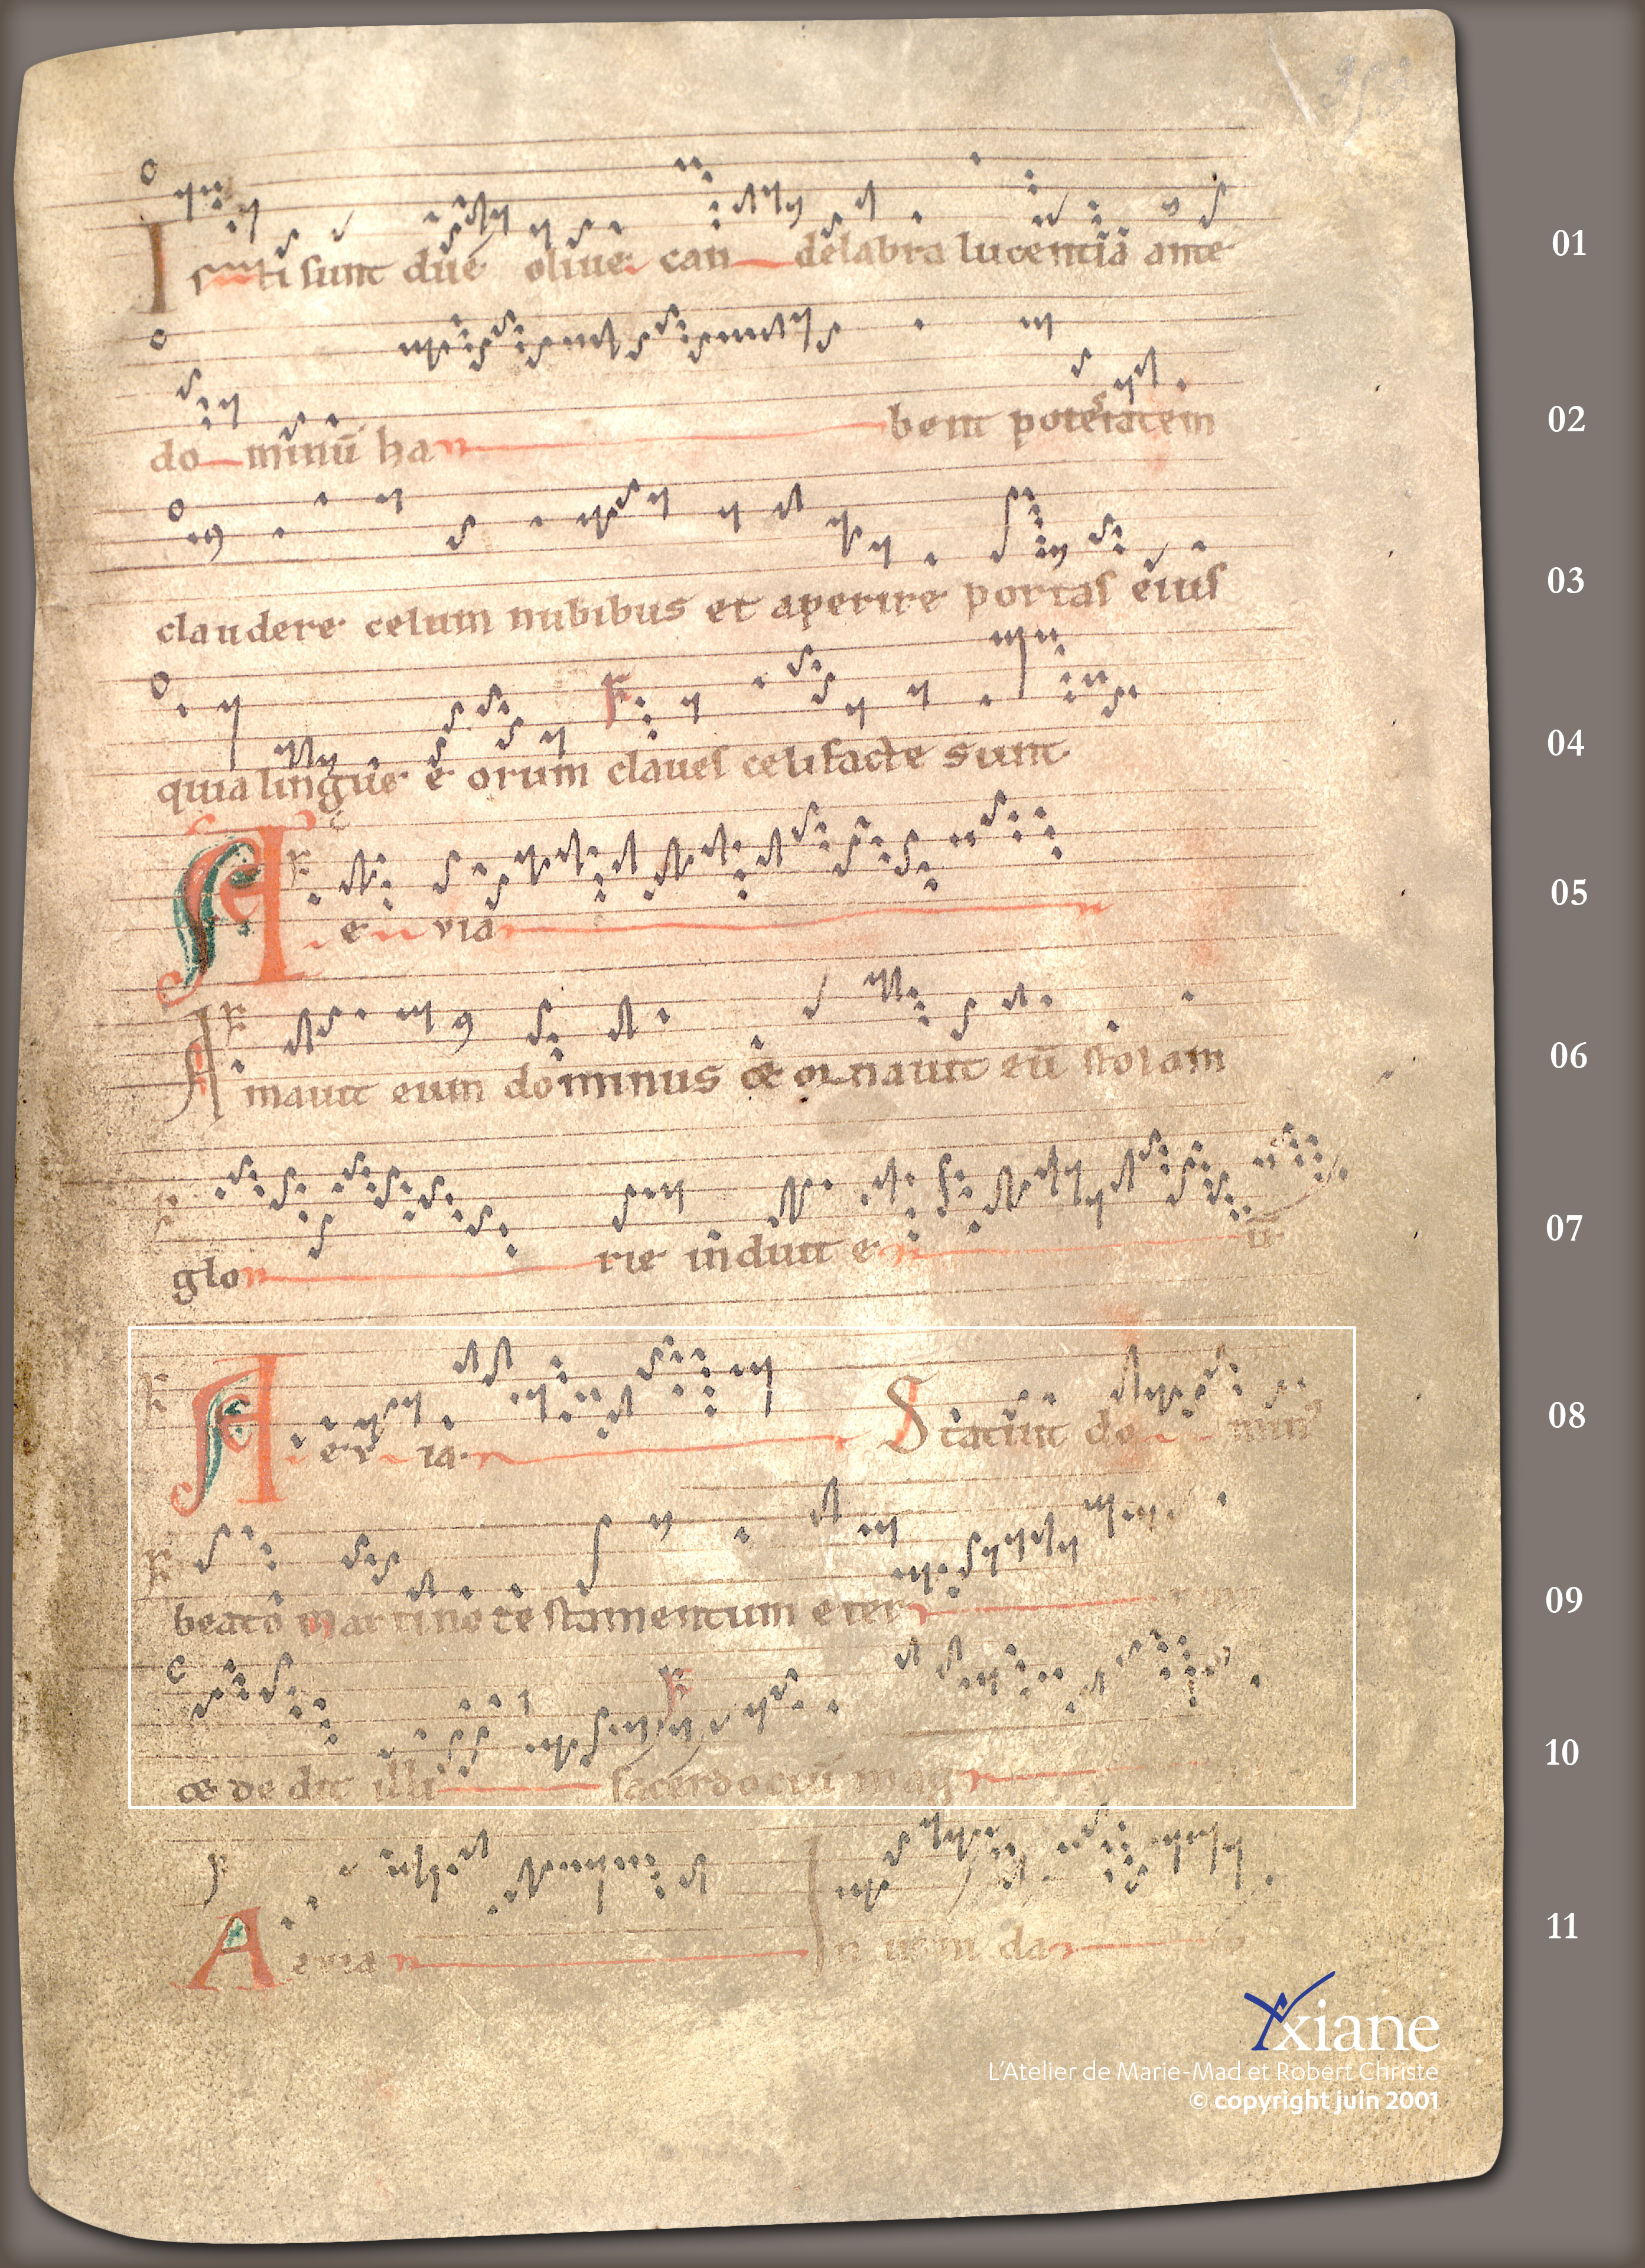 353
Isti sunt due oliue can delabra lucentia ante 01
do minū ha bent potestatem 02
claudere celum nubibus et aperire portas eius 03
quia lingue e orum claues celi facte sunt 04
A e via 05
Amauit eum dominus & ornauit eū stolam 06
glo rie induit e ū 07
A ev ia Statuit do min 08
beato Martino testamentum eter 09
& de dit illi sacerdociū mag 10
A evia In 11
Yxiane
L'Atelier de Marie-Mad et Robert Christe
© copyright juin 2001